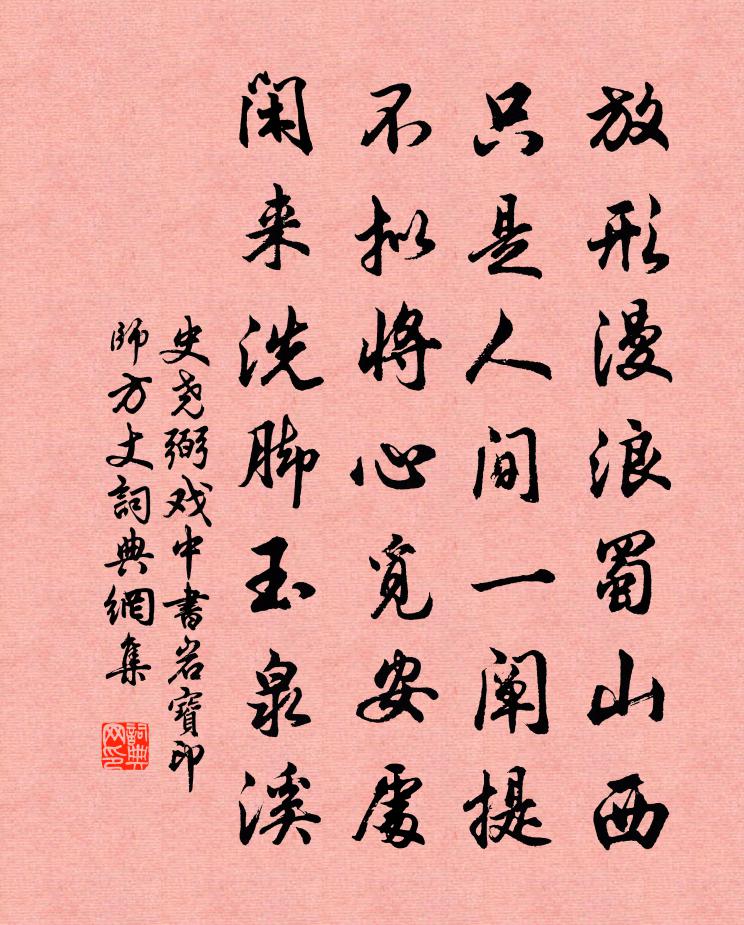 放形漫浪蜀山西
只是人间一阐提
不拟将心觅安處
闲来洗脚玉泉溪
史尧弼戏中書岩寶印
師方丈詞典網集
詞典網印